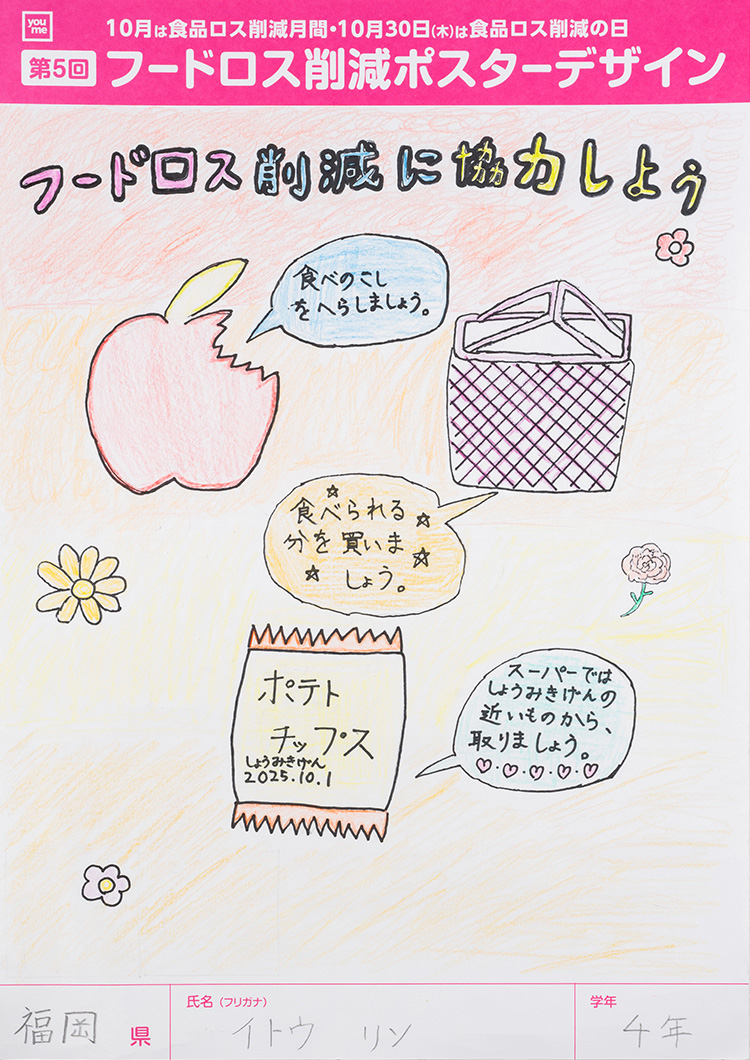 you
me
10月は食品ロス削減月間・10月30日(木)は食品ロス削減の日
第5回 フードロス削減ポスターデザイン
フードロス削減に協力しよう
食べのこし
をへらしましょう。
食べられる
分を買いま
しょう。
ポテト
チップス
しょうみきげん
2025.10.1
スーパーでは
しょうみきげんの
近いものから、
取りましょう。
福岡 県
氏名(フリガナ)
イトウ リン
学年
4年